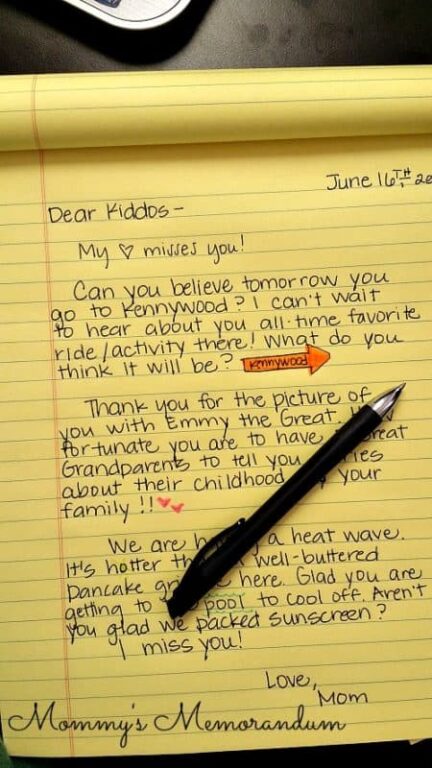 June 16TH, 20
Dear Kiddos -
My ♡ misses you!
Can you believe tomorrow you
go to Kennywood? I can't wait
to hear about you all-time favorite
ride/activity there! What do you
think it will be? Kennywood
Thank you for the picture of
you with Emmy the Great.
fortunate you are to have
Grandparents to tell you
about their childhood your
family!!
We are a heat wave.
It's hotter well-buttered
pancake here. Glad you are
getting to pool to cool off. Aren't
you glad we packed sunscreen?
I miss you!
Love,
Mom
Mommy's Memorandum